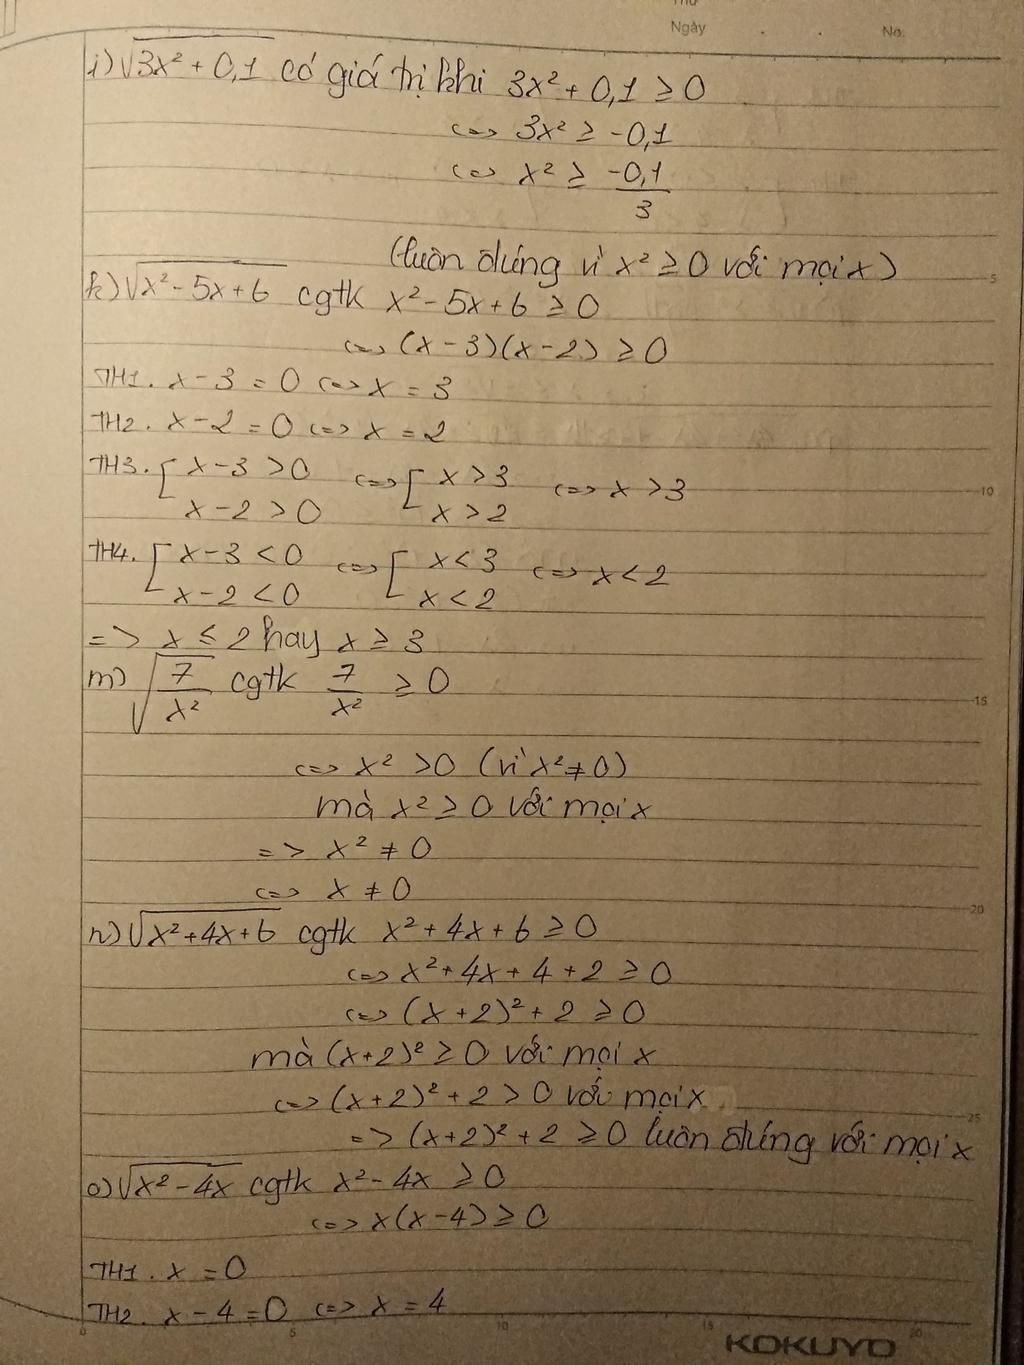 Thứ
Ngày . . No.
i) √(3x² + 0,1) có giá trị khi 3x² + 0,1 ≥ 0
<=> 3x² ≥ -0,1
<=> x² ≥ -0,1/3
(luôn đúng vì x² ≥ 0 với mọi x)
k) √(x² - 5x + 6) cgtk x² - 5x + 6 ≥ 0
<=> (x - 3)(x - 2) ≥ 0
TH1. x - 3 = 0 <=> x = 3
TH2. x - 2 = 0 <=> x = 2
TH3. [ x - 3 > 0 <=> [ x > 3 <=> x > 3
x - 2 > 0 x > 2
TH4. [ x - 3 < 0 <=> [ x < 3 <=> x < 2
x - 2 < 0 x < 2
=> x ≤ 2 hay x ≥ 3
m) √(7/x²) cgtk 7/x² ≥ 0
<=> x² > 0 (vì x² ≠ 0)
mà x² ≥ 0 với mọi x
=> x² ≠ 0
<=> x ≠ 0
n) √(x² + 4x + 6) cgtk x² + 4x + 6 ≥ 0
<=> x² + 4x + 4 + 2 ≥ 0
<=> (x + 2)² + 2 ≥ 0
mà (x + 2)² ≥ 0 với mọi x
<=> (x + 2)² + 2 > 0 với mọi x
=> (x + 2)² + 2 ≥ 0 luôn đúng với mọi x
o) √(x² - 4x) cgtk x² - 4x ≥ 0
<=> x(x - 4) ≥ 0
TH1. x = 0
TH2. x - 4 = 0 <=> x = 4
0 5 10 15 20
KOKUYO
5
10
15
20
25